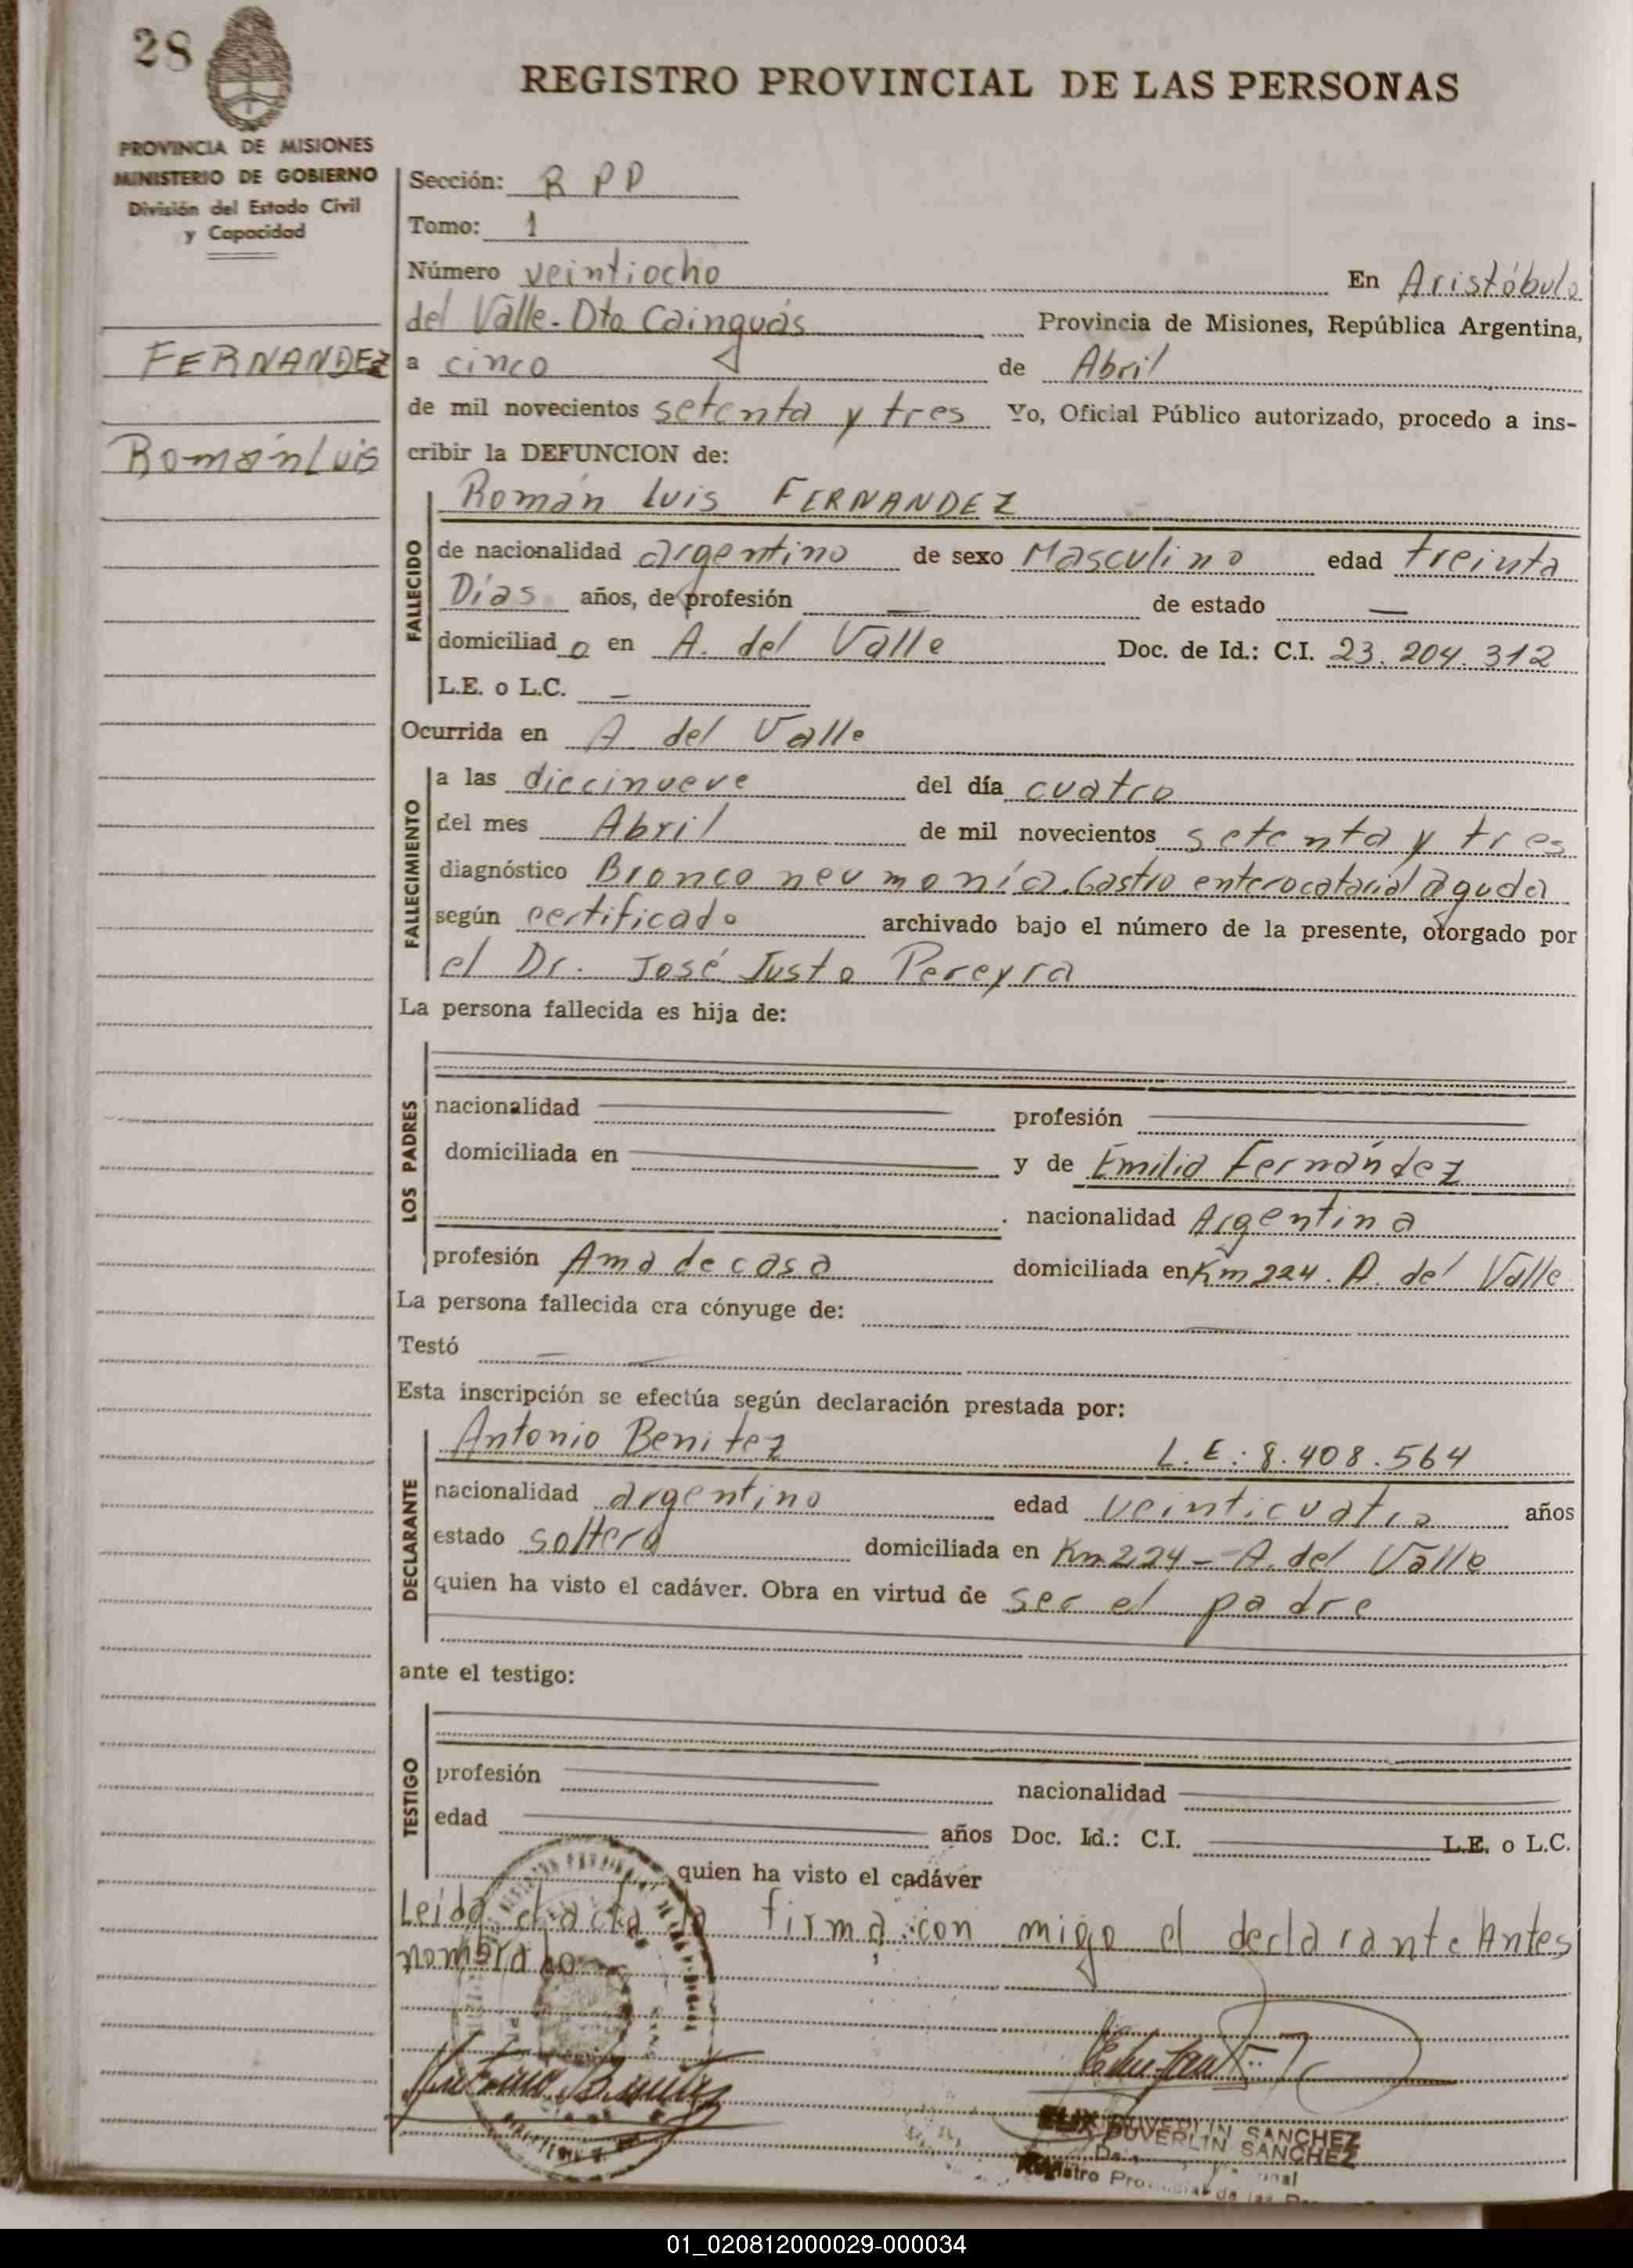 28
REGISTRO PROVINCIAL DE LAS PERSONAS
PROVINCIA DE MISIONES
MINISTERIO DE GOBIERNO
División del Estado Civil
y Capacidad
Sección: R P D
Tomo: 1
Número veintiocho En Aristóbulo
del Valle - Dto Cainguás Provincia de Misiones, República Argentina,
FERNANDEZ
a cinco de Abril
de mil novecientos setenta y tres Yo, Oficial Público autorizado, procedo a ins-
Román Luis
cribir la DEFUNCION de:
Román Luis FERNANDEZ
FALLECIDO
de nacionalidad argentino de sexo Masculino edad treinta
Días años, de profesión — de estado —
domiciliad o en A. del Valle Doc. de Id.: C.I. 23.204.312
L.E. o L.C. —
Ocurrida en A del Valle
FALLECIMIENTO
a las diecinueve del día cuatro
del mes Abril de mil novecientos setenta y tres
diagnóstico Bronco neumonía. Gastro enterocatarial aguda
según certificado archivado bajo el número de la presente, otorgado por
el Dr. José Justo Pereyra
La persona fallecida es hija de:
LOS PADRES
nacionalidad profesión
domiciliada en y de Emilia Fernández
nacionalidad Argentina
profesión Ama de casa domiciliada en Km 224. A. del Valle
La persona fallecida era cónyuge de:
Testó —
Esta inscripción se efectúa según declaración prestada por:
DECLARANTE
Antonio Benitez L.E: 8.408.564
nacionalidad argentino edad veinticuatro años
estado soltero domiciliada en Km 224 - A. del Valle
quien ha visto el cadáver. Obra en virtud de ser el padre
ante el testigo:
TESTIGO
profesión nacionalidad
edad años Doc. Id.: C.I. L.E. o L.C.
quien ha visto el cadáver
Leida el acta la firma con migo el declarante Antes
nombrado
Antonio Benitez
DUVERLIN SANCHEZ
Registro Provincial de las
01_020812000029-000034